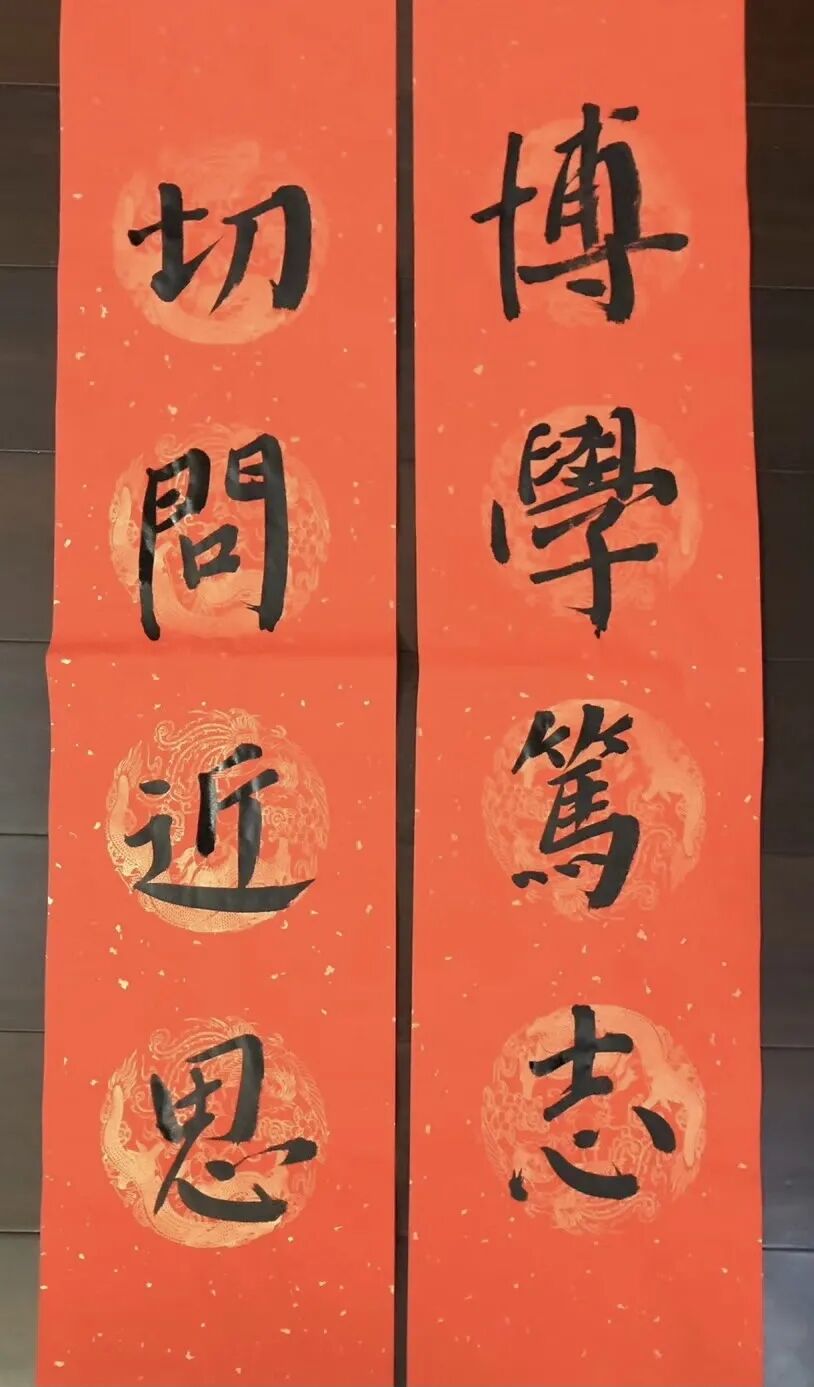 博學篤志
切問近思